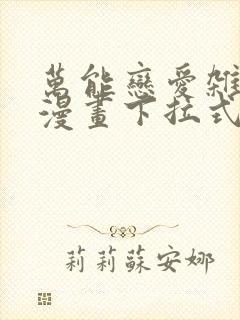 萬能戀愛雜
漫畫下拉式
莉莉蘇安娜